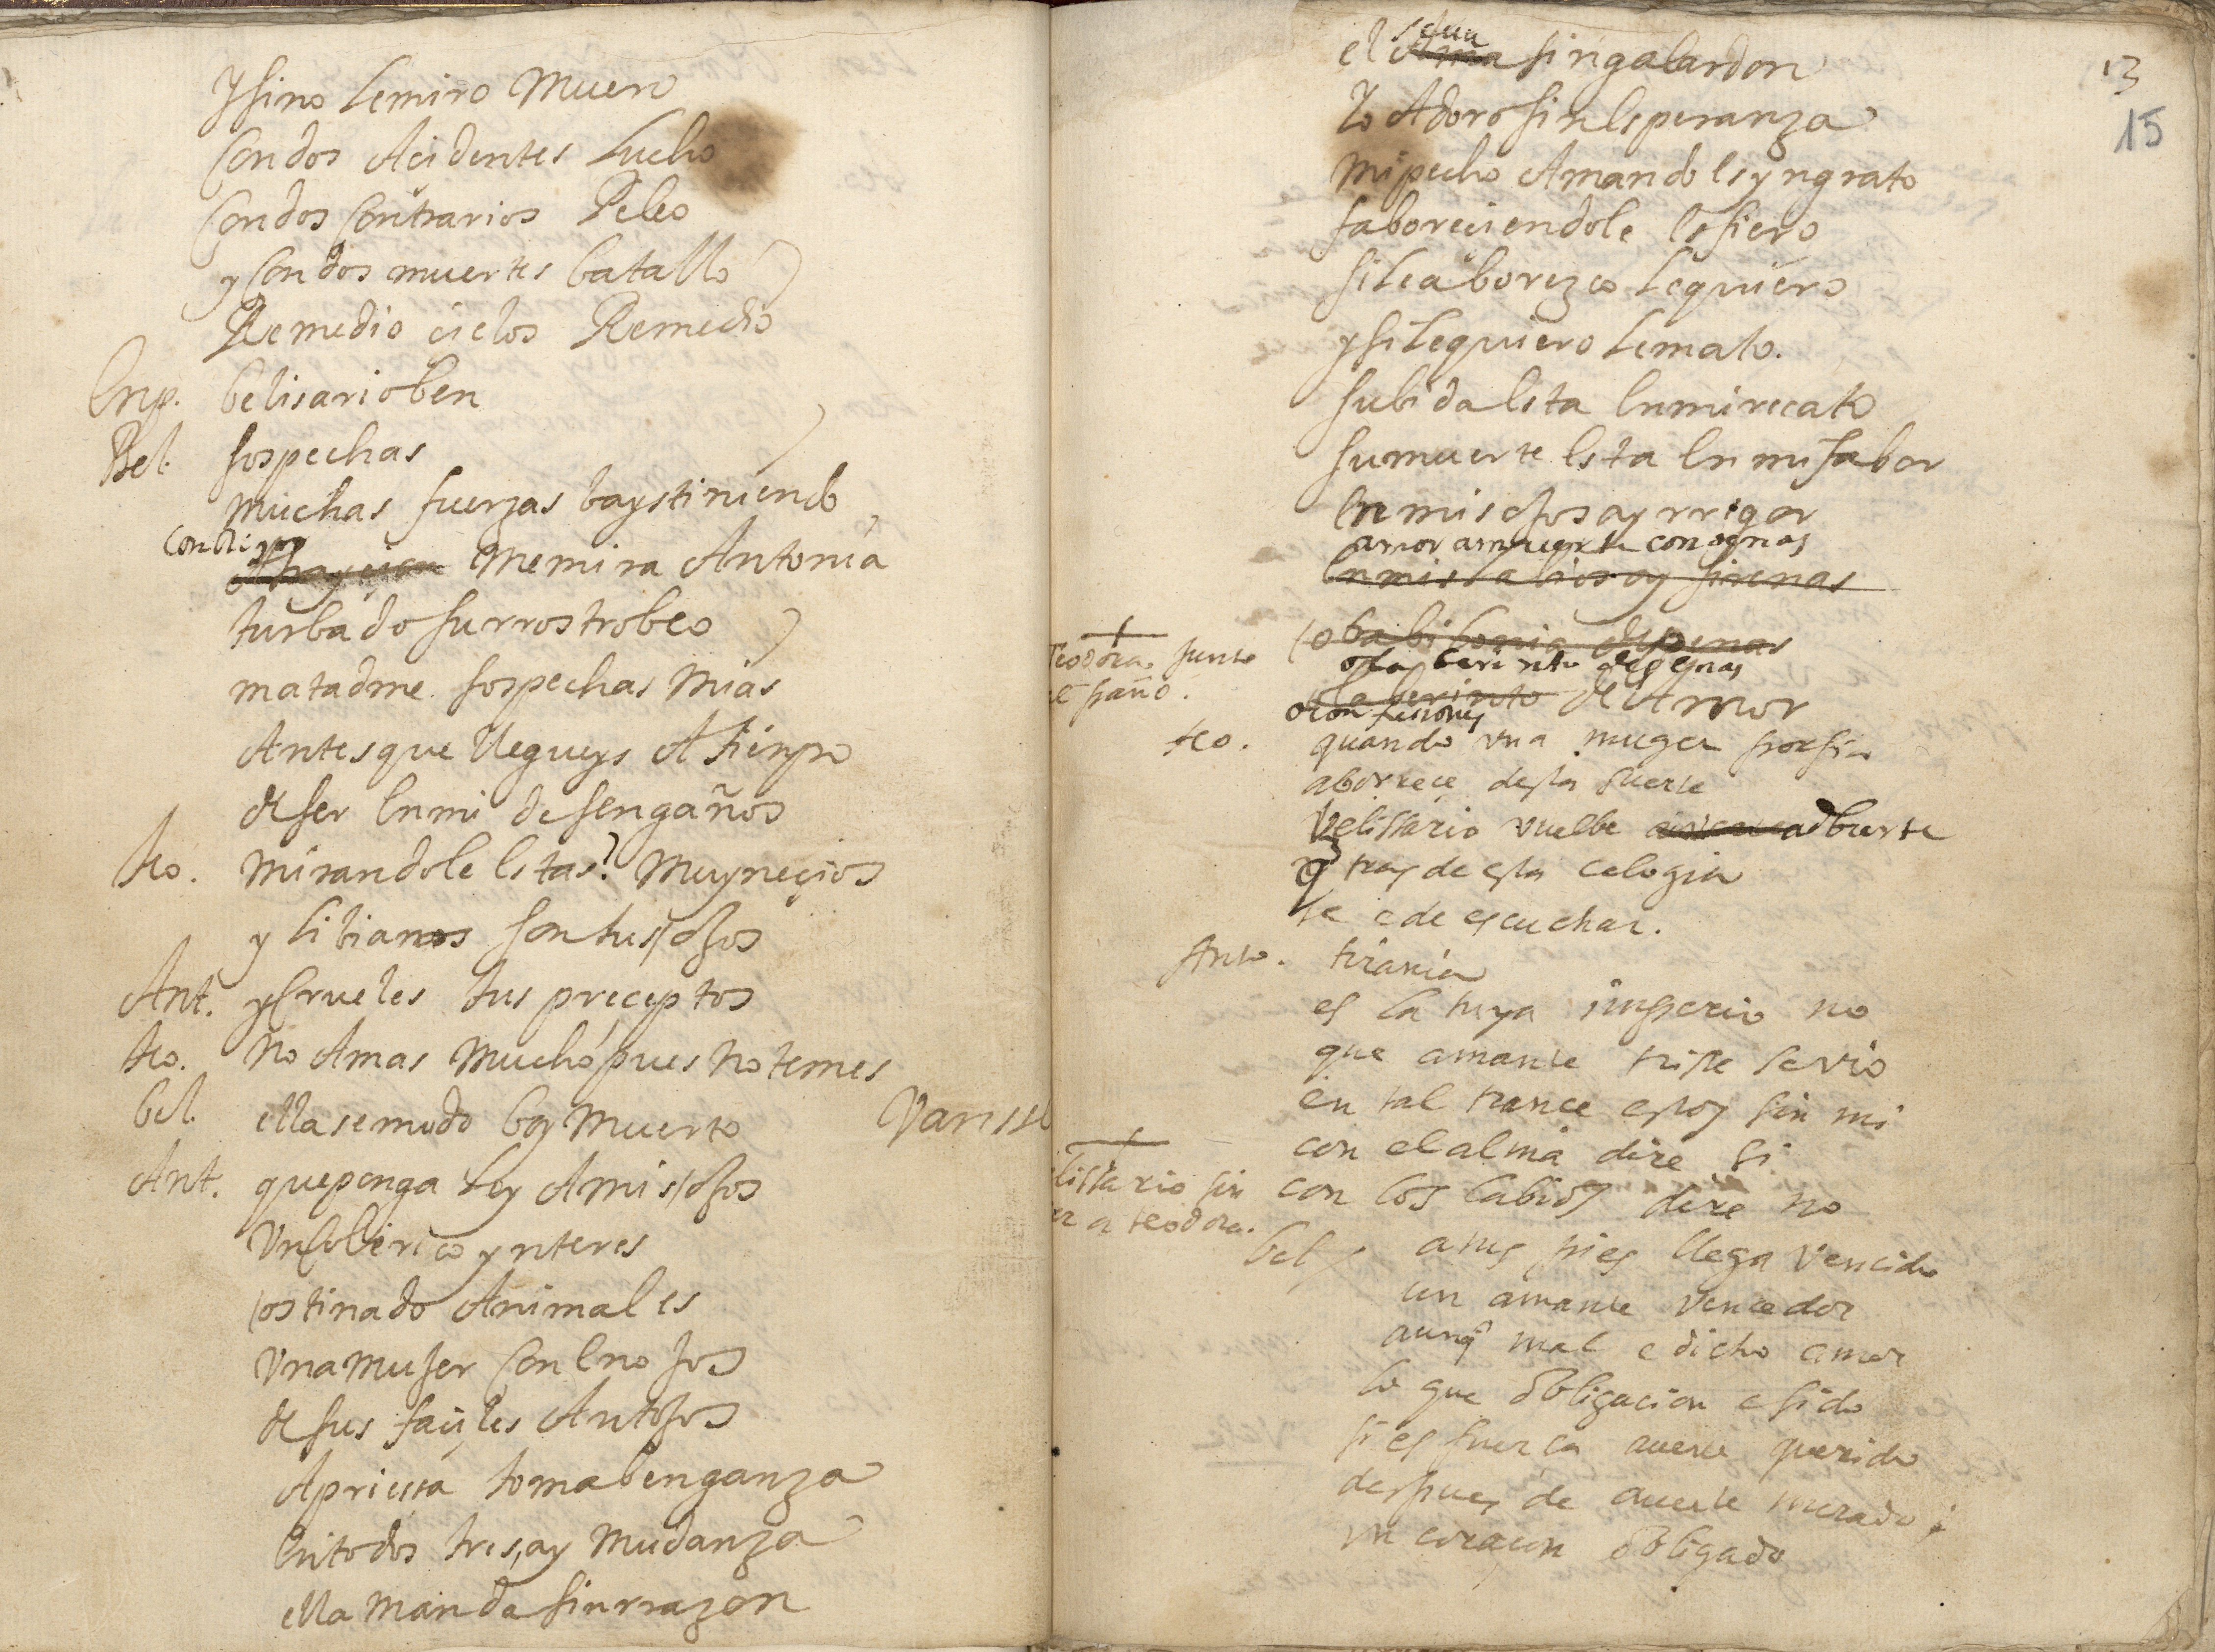 Y sino le miro Muero
Con dos Acidentes Lucho
Con dos Contrarios Peleo
y Con dos muertes batallo
Remedio çielos Remedio
Enp. belisario ben
Bel. sospechas
muchas fuerzas bays tiniendo
con
me mira Antonia
turbado su rrostro beo
matadme sospechas mias
Antes que llegueys A tienpo
de ser En mi desengaños
teo. mirandole Estas? Muy neçios
y libianos son tus ojos
Ant. y Crueles tus preceptos
teo. No Amas mucho pues no temes
bel. ella se mudo boy Muerto Vansse
Ant. que ponga ley A mis ojos
Un ynteres
ostinado Animal es
Una mujer Con Enojos
de sus façiles Antojos
Apriessa toma benganza
En todos tres, ay mudanza
ella manda sin rrazon
13
15
el sin galardon
Yo Adoro sin Esperanza
mi pecho Amando Es yngrato
faboreciendole Es fiero
si le aborezco le quiero
y si le quiero le mato.
su bida Esta En mi recato
su muerte Esta En mi fabor
En mis ojos ay rrigor
amor
En mis labios ay sirenas
o babilonia de penas
Teodora junto
al paño.
o laberinto de penas
o laberinto de Amor
o confusiones
teo. quando una muger porfia
aborrece desta suerte
Velissario vuelbe adbierte
q tras de esta celogia
te e de escuchar.
Anto. tirania
es la tuya imperio no
que amante triste se vio
en tal trance estoy sin mi
con el alma dire si
lissario sin
er a teodora.
con los labios dire no
bel. a tus pies llega vencido
un amante vencedor
aunq mal e dicho amor
lo que obligacion e sido
si es fuerça auerte querido
despues de auerte mirado
un coraçon obligado